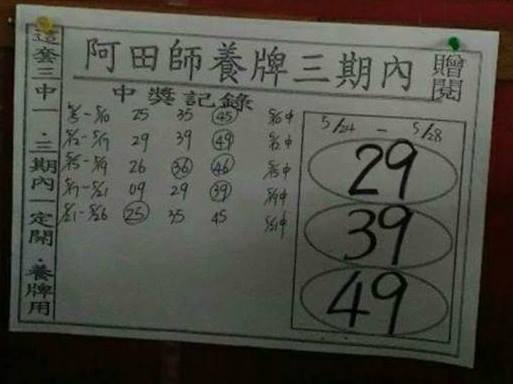 阿田師養牌三期內
贈閱
這套三中一．三期內一定開．養牌用
中獎記錄
5/5-5/10 25 35 45 5/6中
5/12-5/17 29 39 49 5/12中
5/15-5/19 26 36 46 5/15中
5/17-5/21 09 29 39 5/19中
5/21-5/26 25 35 45 5/21中
5/24 - 5/28
29
39
49